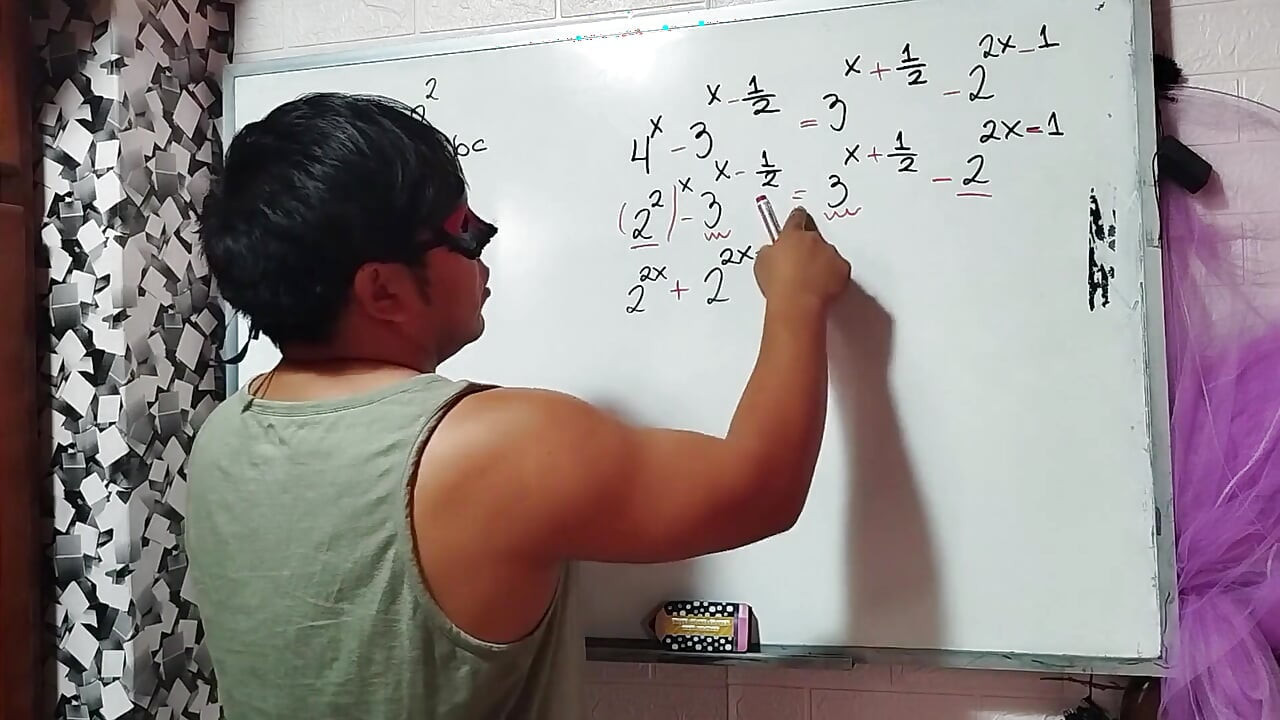 2
bc
4^x - 3^(x - 1/2) = 3^(x + 1/2) - 2^(2x - 1)
(2^2)^x - 3^(x - 1/2) = 3^(x + 1/2) - 2^(2x - 1)
2^(2x) + 2^(2x